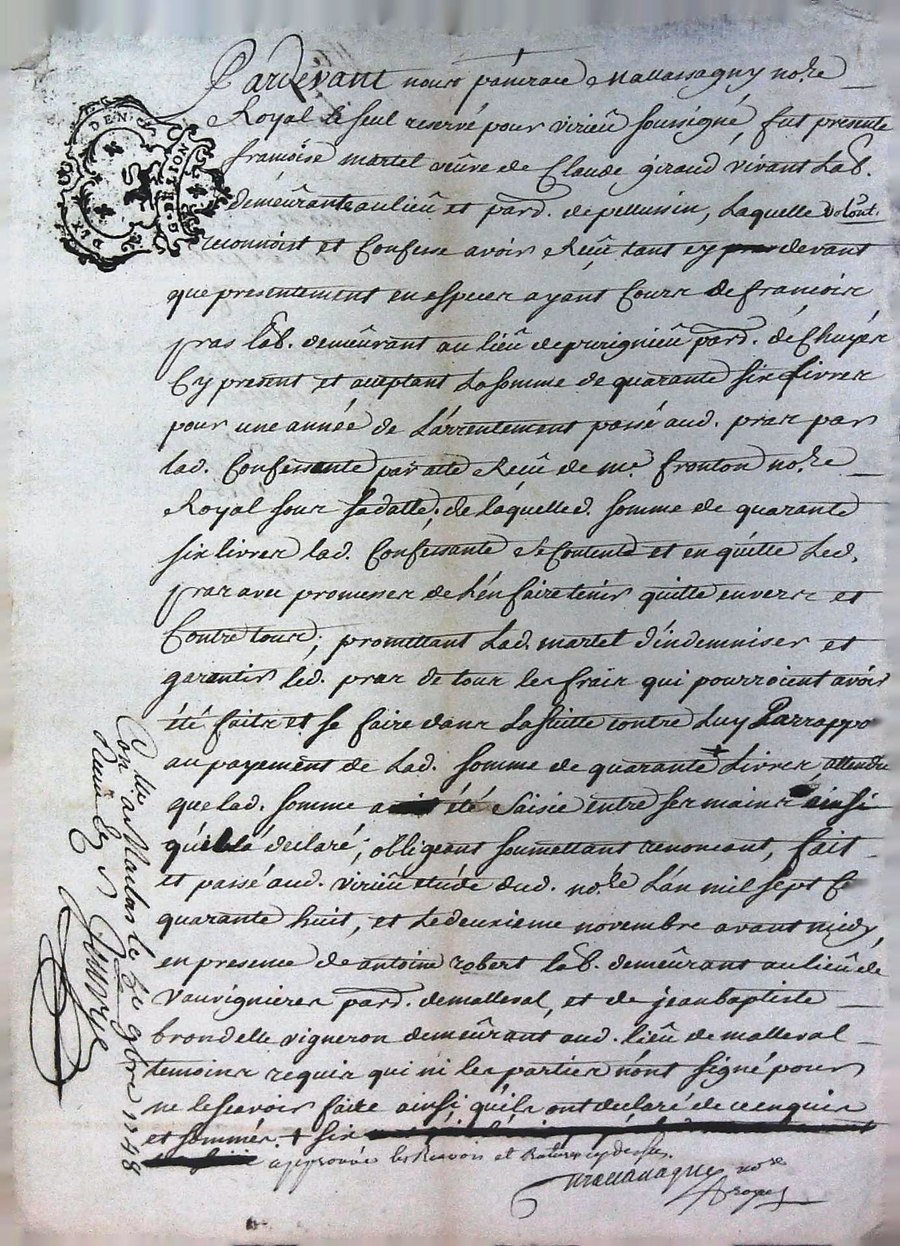 DEN.
G. DE LION
DIX
Pardevant nous pancrace Mallassagny no.re
Royal le seul reservé pour virieû soussigné, fut presente
françoise martel veûve de Claude giraud vivant Lab.
demeûrante au lieû et parr. de pellussin, Laquelle volont.
reconnoist et Confesse avoir Reçû tant cy devant
que presentement en especes ayant Cours de françois
pras Lab. demeûrant au lieû de purignieû parr. de Chuyer
Cy present et aceptant La somme de quarante six Livres
pour une année de L'arrentement passé aud. pras par
lad. Confessante par acte Reçû de me. fronton no.re
Royal sous sa datte; de laquelle d. somme de quarante
six livres lad. Confessante se Contente et en quitte Led.
pras avec promesses de L'en faire tenir quitte envers et
Contre tous; promettant Lad. martel d'indemniser et
garantir led. pras de tous les frais qui pourroient avoir
été faits et se faire dans La suitte contre Luy Par rappo
au payement de Lad. somme de quarante + Livres attendu
que lad. somme a été saisie entre ses mains ainsi
qu'il a déclaré; obligeant soumettant renoncant, fait
et passé aud. virieû etude dud. no.re L'an mil sept C
quarante huit, et Le deuxieme novembre avant midy,
en presence de antoine robert Lab. demeûrant au lieû de
Vauvignieres parr. de malleval, et de jean baptiste
brondelle vigneron demeûrant aud. lieû de malleval
temoins requis qui ni les parties n'ont signé pour
ne le scavoir faire ainsi qu'ils ont declaré de ce enquis
et sommés. + six
approuvé les Renvois et Ratures cy dessus.
Mallassagny no.re
Royal
Con.lle a Maclas le 3e 9bre 1748
Reçu